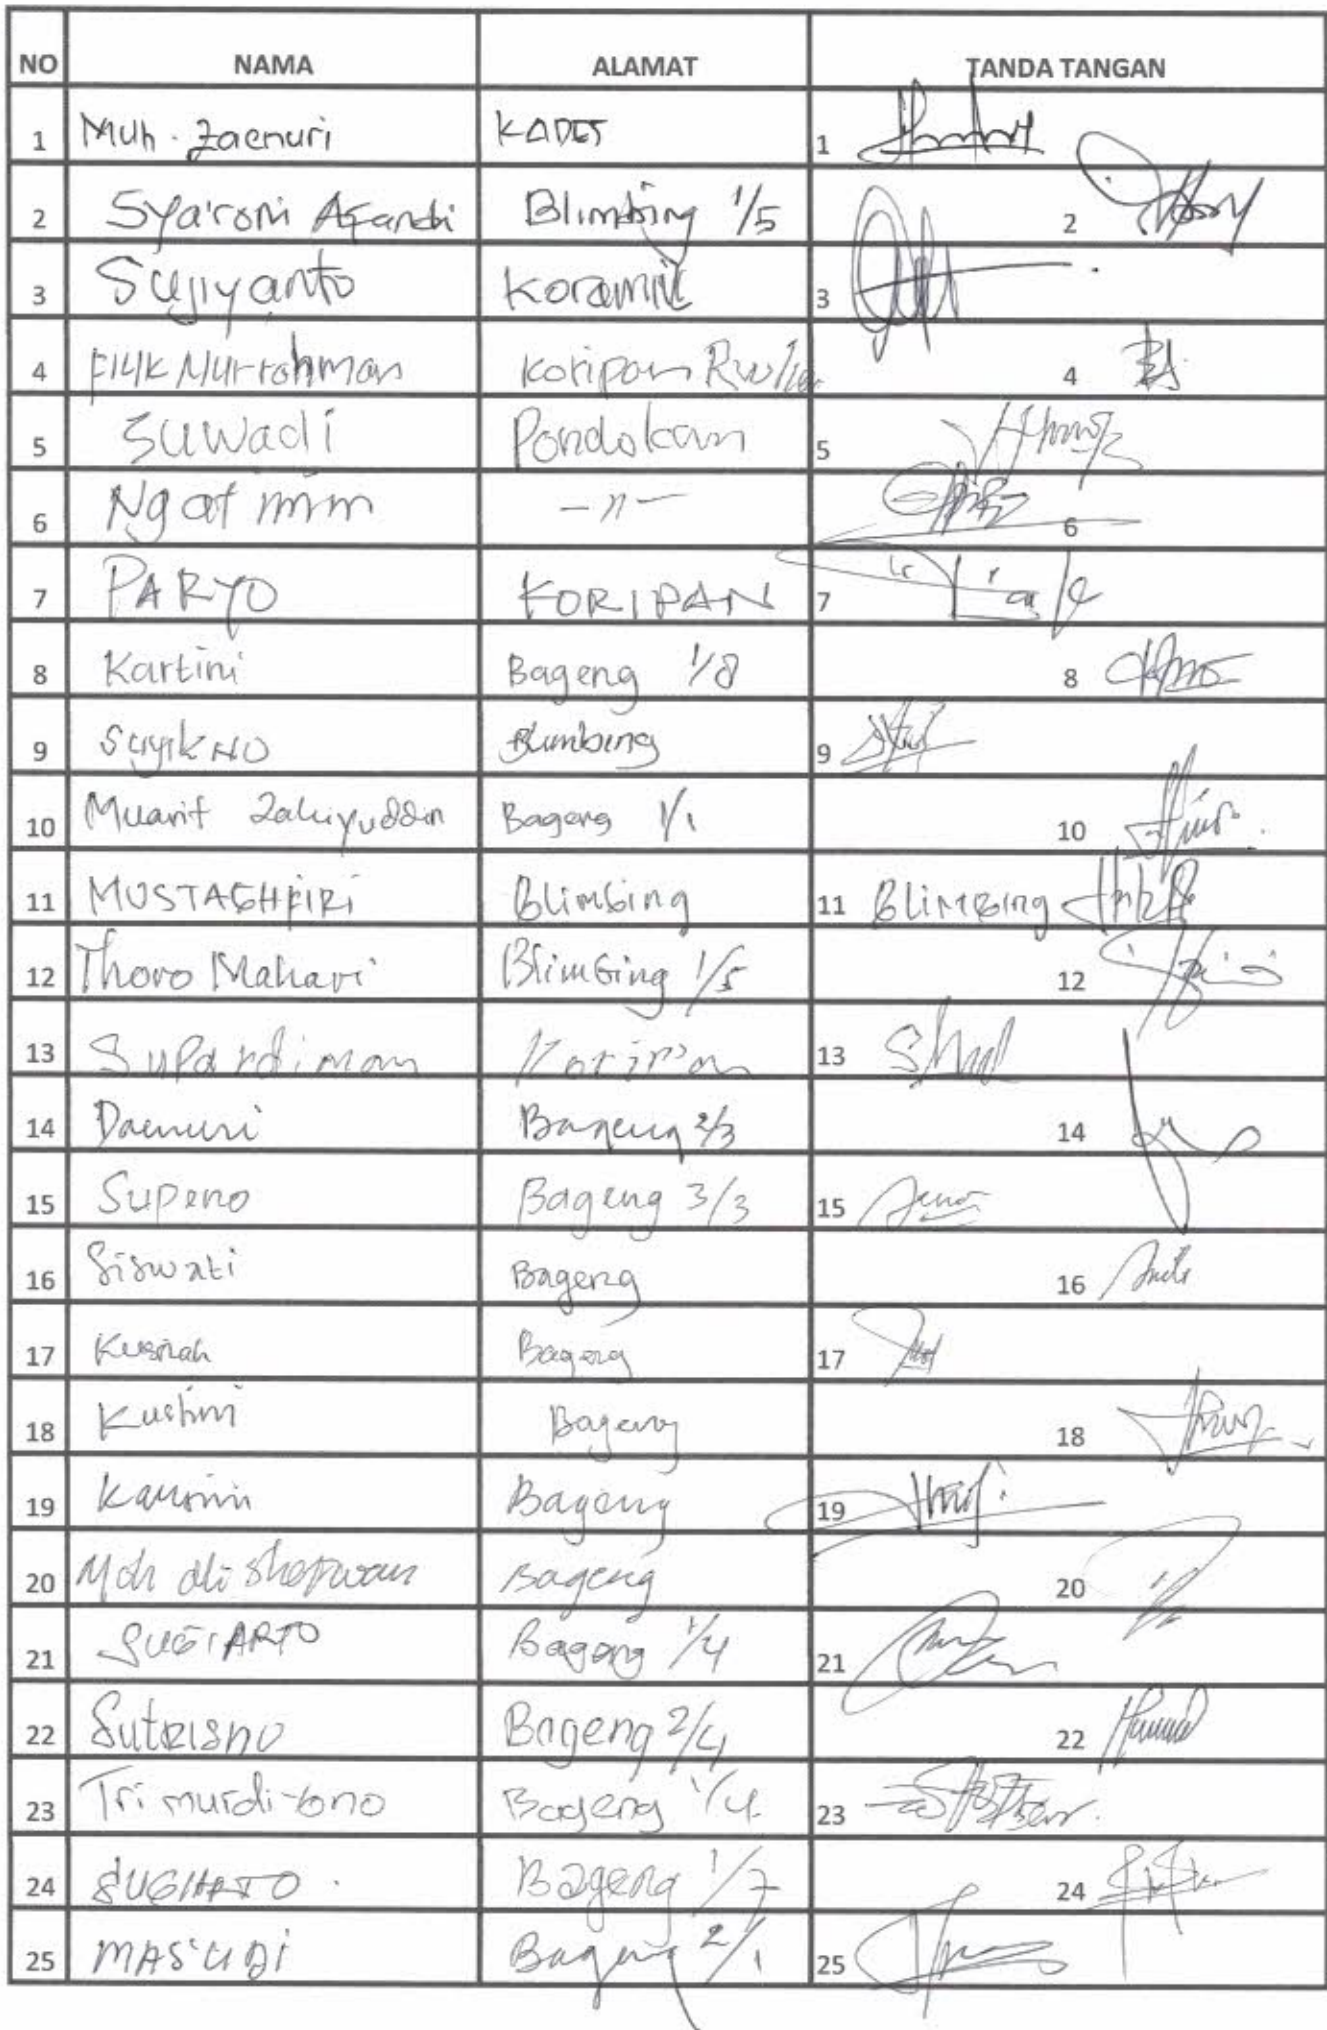 NO NAMA ALAMAT TANDA TANGAN
1 Muh. Zaenuri KADES 1
2 Sya'roni Afandi Blimbing 1/5 2
3 Sujiyanto Koramil 3
4 Nurrohman Koripan 4
5 Suwadi Pondokan 5
6 Ngatmin -"- 6
7 PARYO KORIPAN 7
8 Kartini Bageng 1/8 8
9 Blimbing 9
10 Muarif Zakiyuddin Bageng 1/1 10
11 MUSTAGHFIRI Blimbing 11 Blimbing
12 Thoro Mahari Blimbing 1/5 12
13 Supardiman Koripan 13
14 Daenuri Bageng 2/3 14
15 Supeno Bageng 3/3 15
16 Siswati Bageng 16
17 Kusnah Bageng 17
18 Kustini Bageng 18
19 Bageng 19
20 Moh Ali Bageng 20
21 SUGIARTO Bageng 1/4 21
22 Sutrisno Bageng 2/4 22
23 Tri murdi-ono Bageng 1/4 23
24 Bageng 1/7 24
25 MAS'UDI Bageng 2/1 25